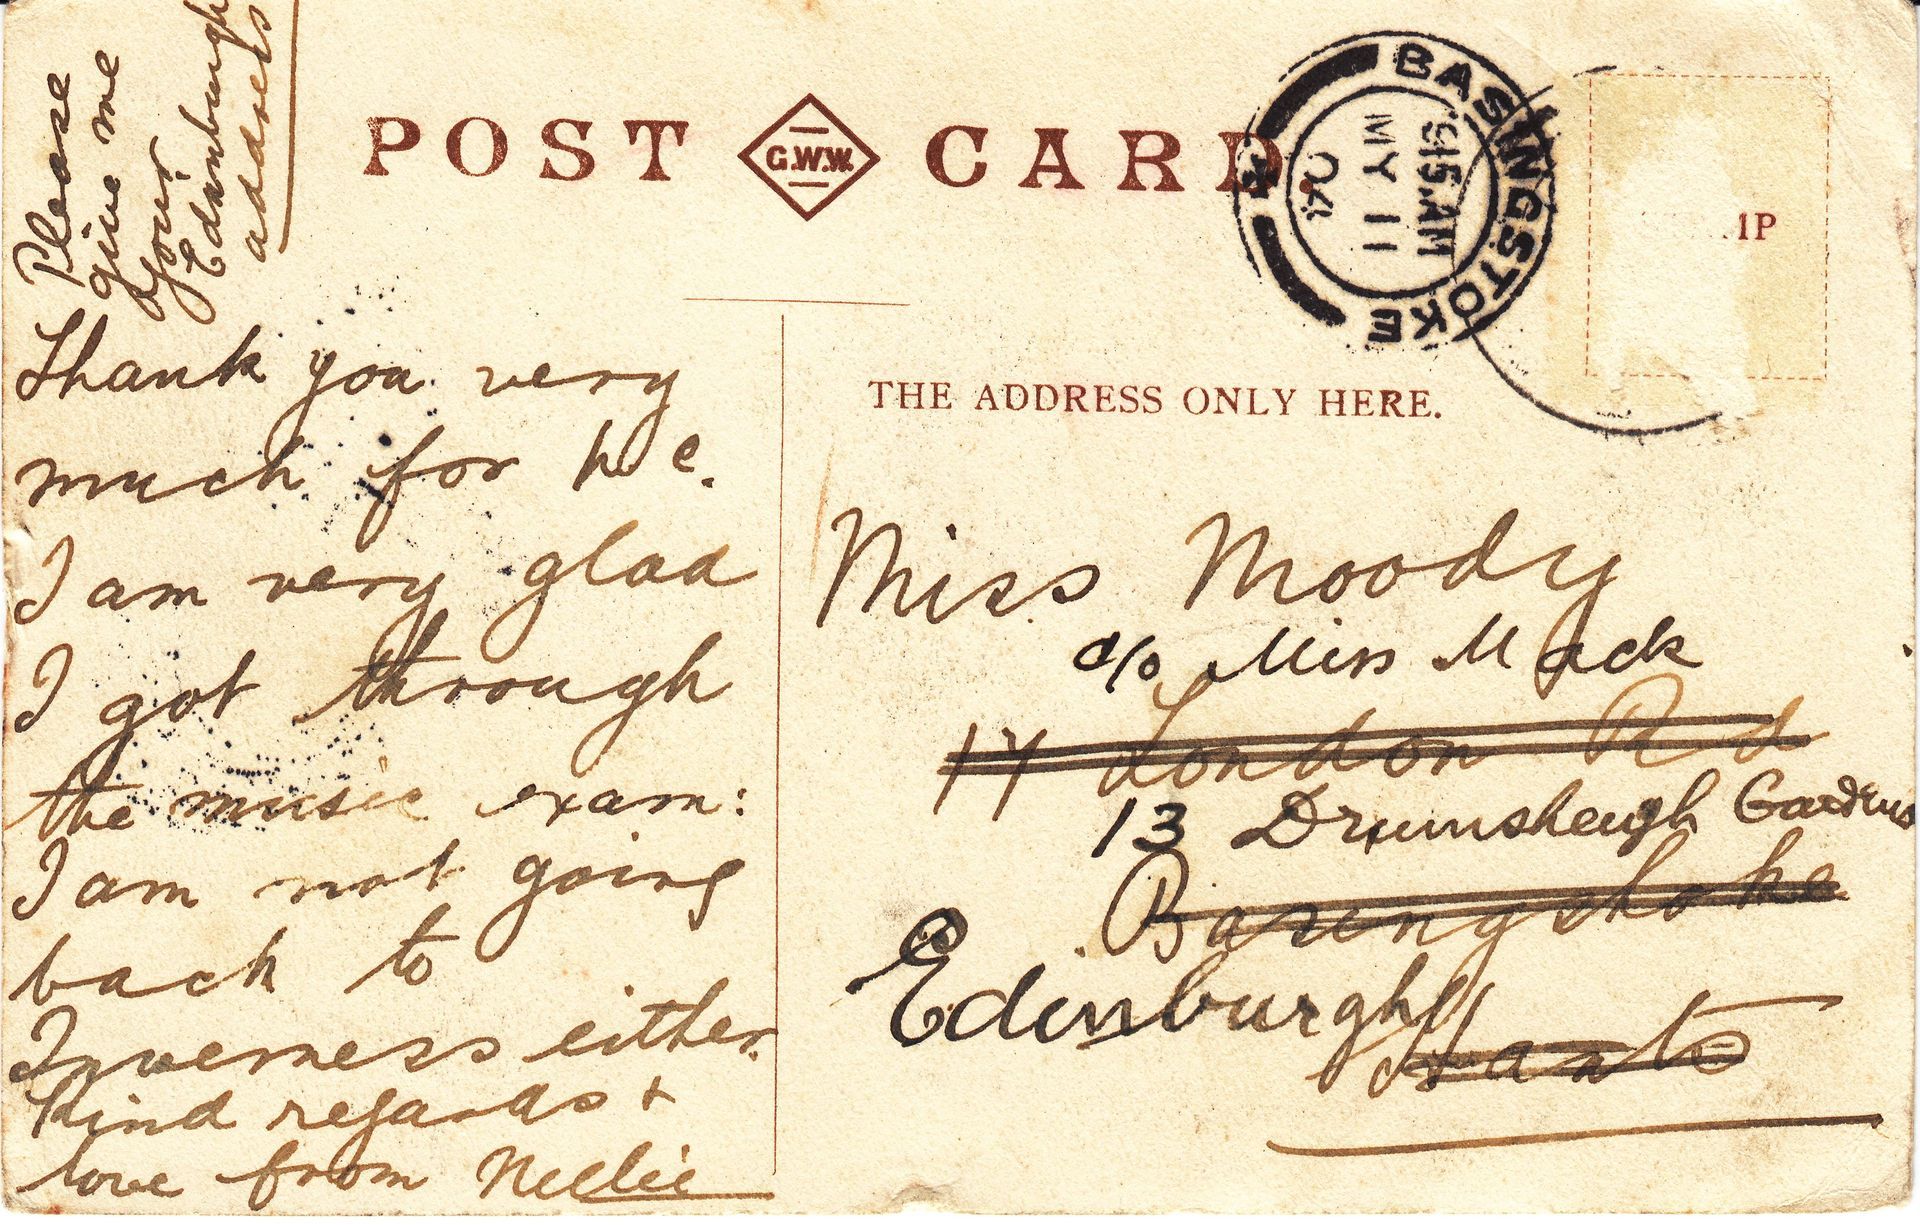 Please
give me
your
Edinburgh
address
POST G.W.W. CARD.
BASINGSTOKE
9.15.AM
MY 11
04
MP
THE ADDRESS ONLY HERE.
Thank you very
much for p c.
I am very glad
I got through
the music exam:
I am not going
back to
Inverness either.
Kind regards +
love from Nellie
Miss Moody
c/o Miss Mack
14 London Rd
13 Drumsheugh Gardens
Basingstoke
Edinburgh
Hants